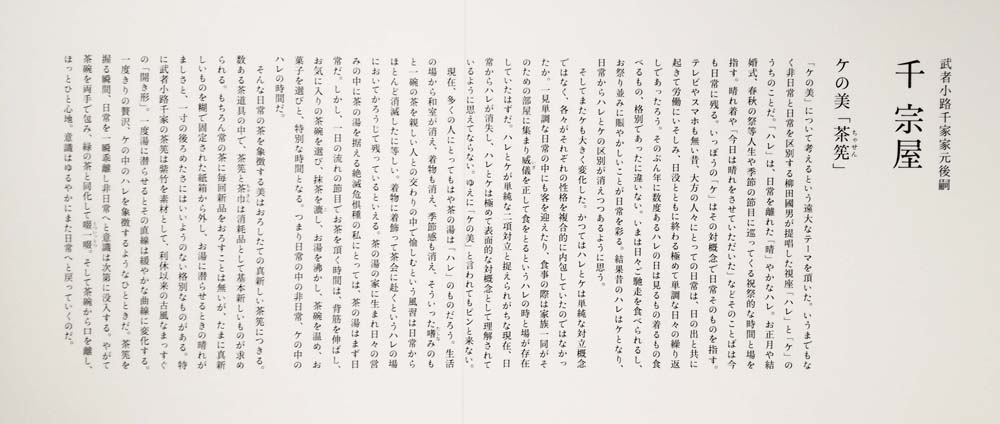 武者小路千家家元後嗣
千 宗屋
ケの美「茶筅」
ちゃせん
「ケの美」について考えるという遠大なテーマを頂いた。いうまでもな
く非日常と日常を区別する柳田國男が提唱した視座「ハレ」と「ケ」の
うちのことだ。「ハレ」は、日常を離れた「晴」やかなハレ。お正月や結
婚式、春秋の祭等人生や季節の節目に巡ってくる祝祭的な時間と場を
指す。晴れ着や「今日は晴れをさせていただいた」などそのことばは今
も日常に残る。いっぽうの「ケ」はその対概念で日常そのものを指す。
テレビやスマホも無い昔、大方の人々にとっての日常は、日の出と共に
起きて労働にいそしみ、日没とともに終わる極めて単調な日々の繰り返
しであったろう。そのぶん年に数度あるハレの日は見るもの着るもの食
べるもの、格別であったに違いない。いまは日々ご馳走を食べられるし、
お祭り並みに賑やかしいことが日常を彩る。結果昔のハレはケとなり、
日常からハレとケの区別が消えつつあるように思う。
そしてまたケも大きく変化した。かつてはハレとケは単純な対立概念
ではなく、各々がそれぞれの性格を複合的に内包していたのではなかっ
たか。一見単調な日常の中にも客を迎えたり、食事の際は家族一同がそ
のための部屋に集まり威儀を正して食をとるというハレの時と場が存在
していたはずだ。ハレとケが単純な二項対立と捉えられがちな現在、日
常からハレが消失し、ハレとケは極めて表面的な対概念として理解されて
いるように思えてならない。ゆえに「ケの美」と言われてもピンと来ない。
現在、多くの人にとってもはや茶の湯は「ハレ」のものだろう。生活
の場から和室が消え、着物も消え、季節感も消え、そういった嗜みのも
たしな
と一碗の茶を親しい人との交わりの中で愉しむという風習は日常から
ほとんど消滅したに等しい。着物に着飾って茶会に赴くというハレの場
においてかろうじて残っているといえる。茶の湯の家に生まれ日々の営
みの中に茶の湯を据える絶滅危惧種の私にとっては、茶の湯はまず日
常だ。しかし、一日の流れの節目でお茶を頂く時間は、背筋を伸ばし、
お気に入りの茶碗を選び、抹茶を漉し、お湯を沸かし、茶碗を温め、お
菓子を選びと、特別な時間となる。つまり日常の中の非日常、ケの中の
ハレの時間だ。
そんな日常の茶を象徴する美はおろしたての真新しい茶筅につきる。
数ある茶道具の中で、茶筅と茶巾は消耗品として基本新しいものが求め
られる。もちろん常の茶に毎回新品をおろすことは無いが、たまに真新
しいものを糊で固定された紙箱から外し、お湯に潜らせるときの晴れが
ましさと、一寸の後ろめたさにはいいようのない格別なものがある。特
に武者小路千家の茶筅は紫竹を素材として、利休以来の古風なまっすぐ
の「開き形」。一度湯に潜らせるとその直線は緩やかな曲線に変化する。
一度きりの贅沢、ケの中のハレを象徴するようなひとときだ。茶筅を
握る瞬間、日常を一瞬乖離し非日常へと意識は次第に没入する。やがて
茶碗を両手で包み、緑の茶と同化して啜一啜。そして茶碗から口を離し、
ほっとひと心地。意識はゆるやかにまた日常へと戻っていくのだ。